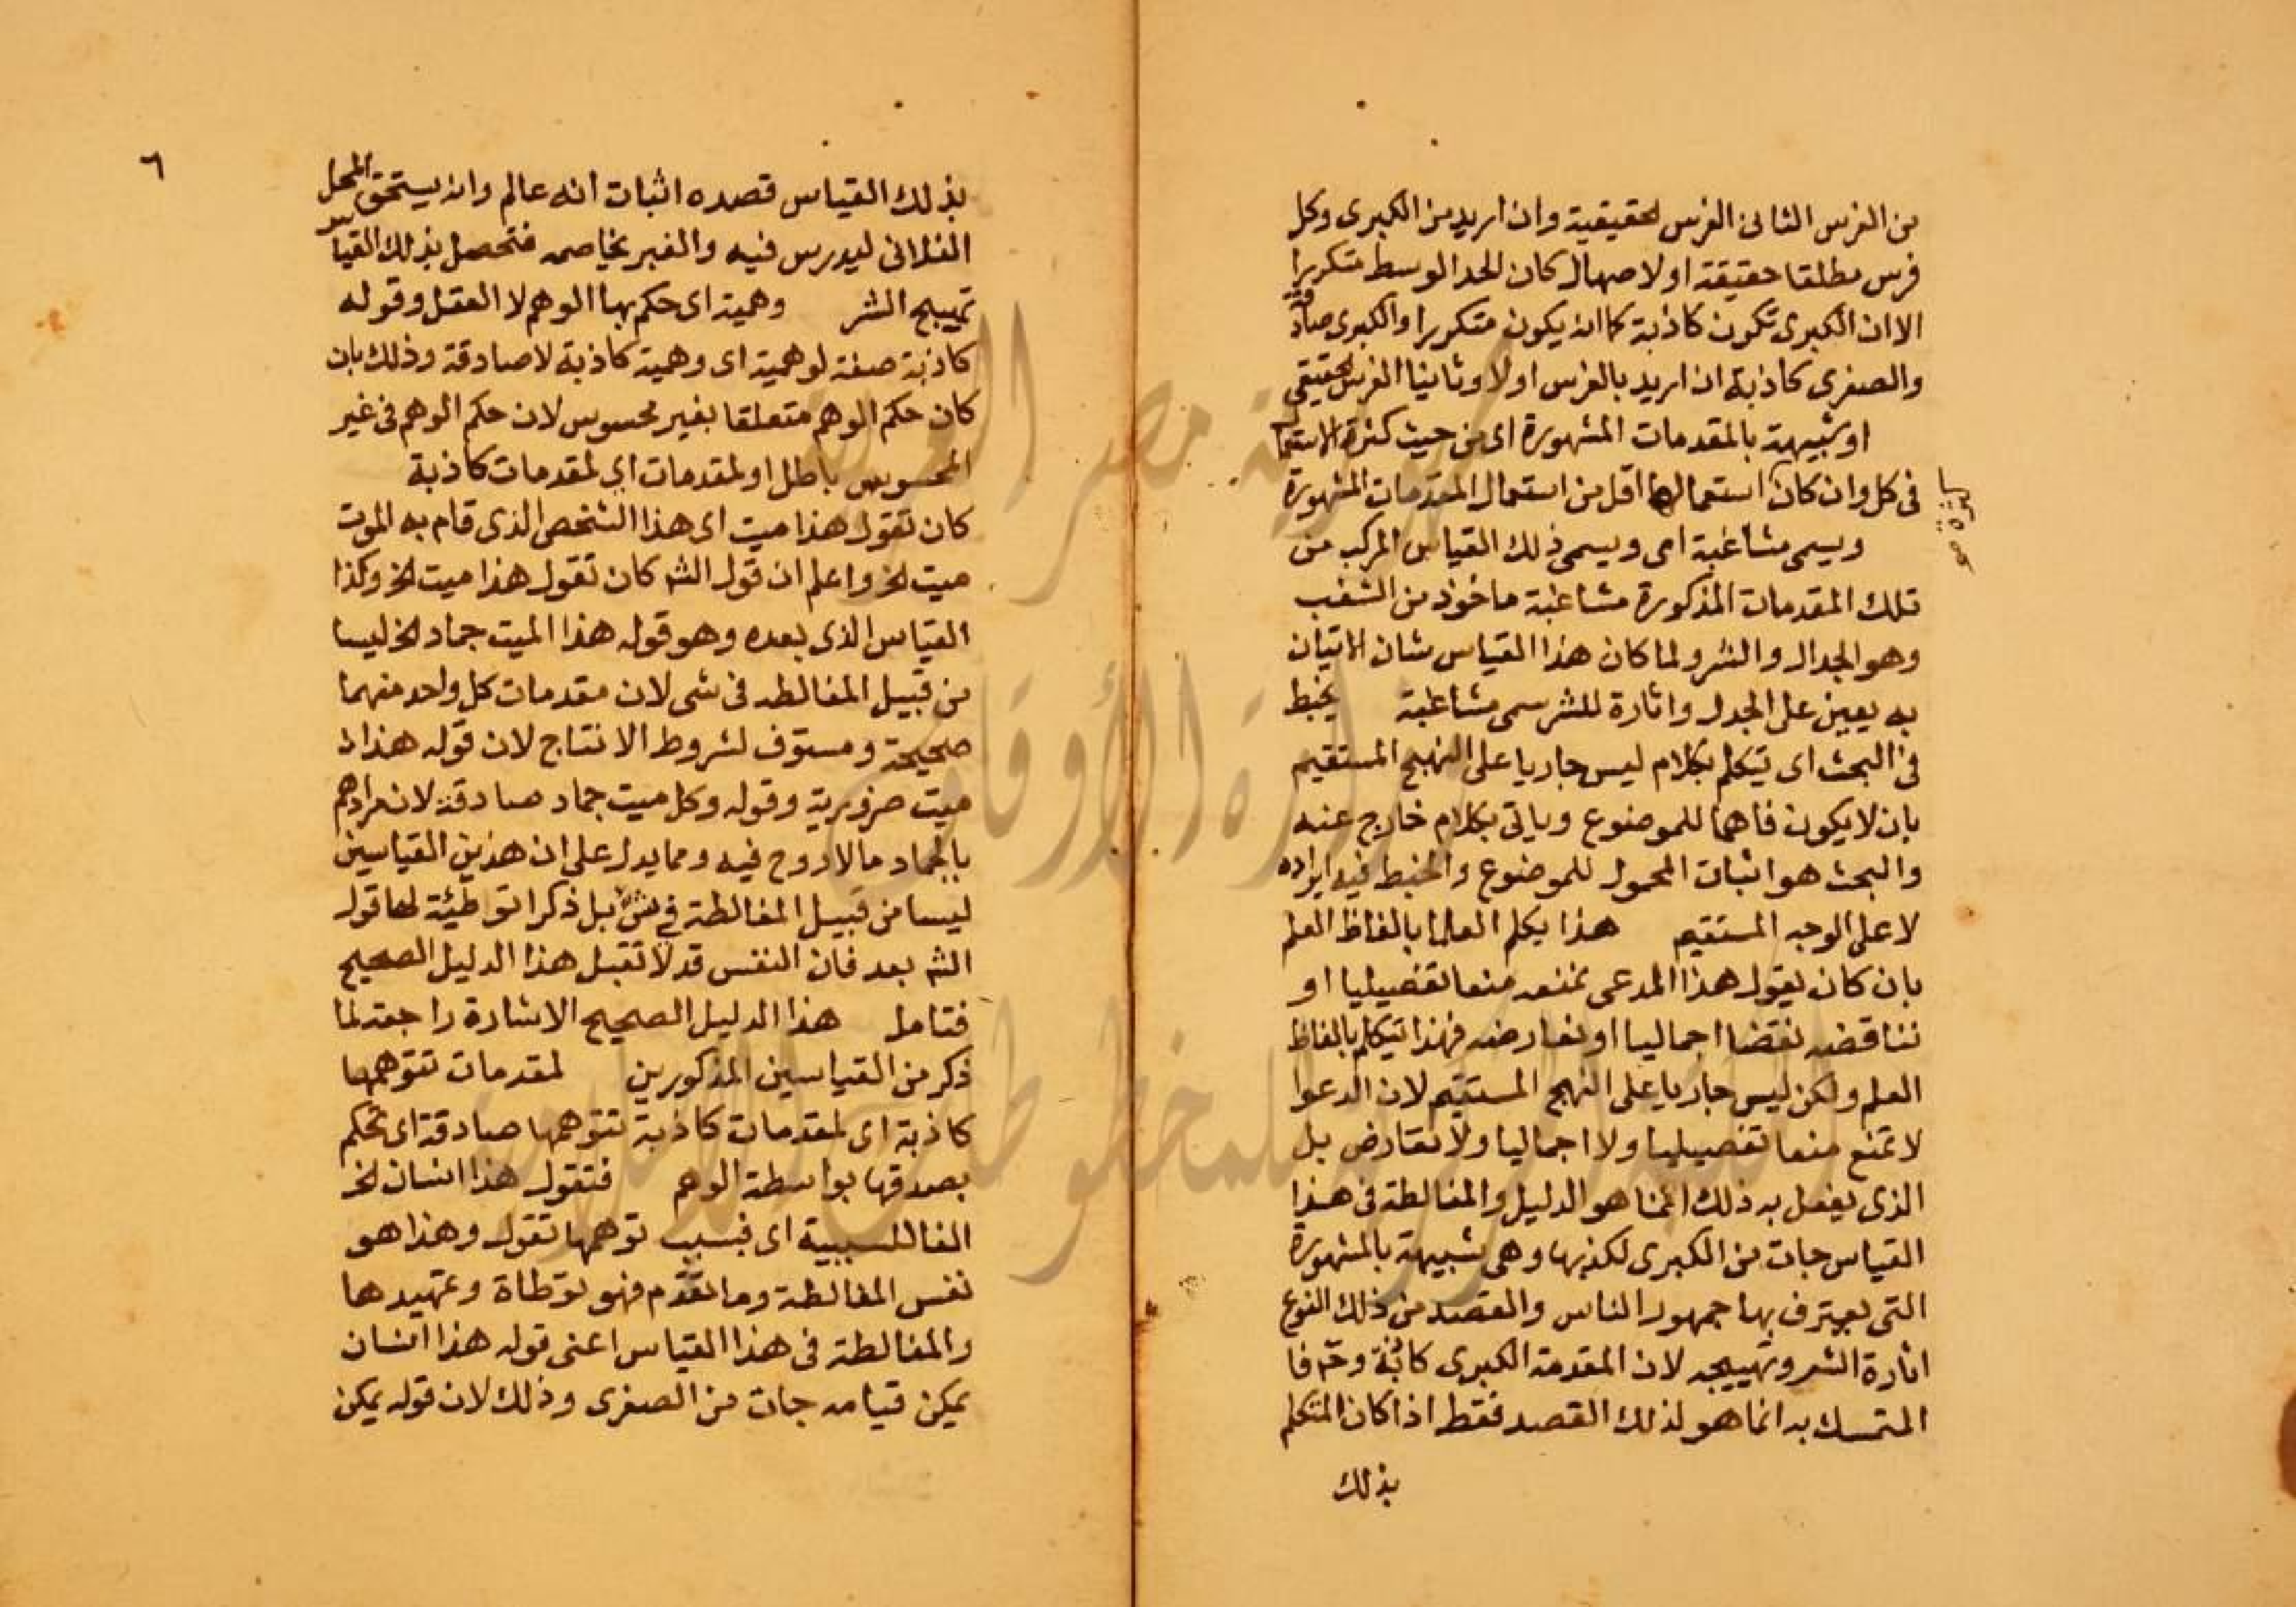 من الفرس الثانى الفرس الحقيقية وان اريد من الكبرى وكل
فرس مطلقا حقيقة اولا صهال كان الحد الوسط متكررا
الا ان الكبرى تكون كاذبة كما انه يكون متكررا والكبرى صادقة
والصغرى كاذبة ان اريد بالفرس اولا وثانيا الفرس الحقيقى
او شبيهة بالمقدمات المشهورة اى من حيث كثرة الاستعما
فى كل وان كان استعمالها اقل من استعمال المقدمات المشهورة
ويسمى مشاغبة اى ويسمى ذلك القياس المركب من
تلك المقدمات المذكورة مشاغبة ماخوذ من الشغب
وهو الجدال والشر ولما كان هذا القياس شان الاتيان
به يعين على الجدل واثارة للشر سمى مشاغبة يخبط
فى البحث اى يتكلم بكلام ليس جاريا على النهج المستقيم
بان لا يكون فاهما للموضوع وياتى بكلام خارج عنه
والبحث هو اثبات المحمول للموضوع والخبط فيه ايراده
لا على الوجه المستقيم هذا يكلم العلما بالفاظ العلم
بان كان يقول هذا المدعى نمنعه منعا تفصيليا او
نناقضه نقضا اجماليا او نعارضه فهذا تيكلم بالفاظ
العلم ولكن ليس جاريا على النهج المستقيم لان الدعوا
لا تمنع منعا تفصيليا ولا اجماليا ولا تعارض بل
الذى يفعل به ذلك انما هو الدليل والمغالطة فى هذا
القياس جات من الكبرى لكذبها وهى شبيهة بالمشهورة
التى يعترف بها جمهور الناس والقصد من ذلك النوع
اثارة الشر وتهييجه لان المقدمة الكبرى كاذبة وح فا
المتمسك به انما هو لذلك القصد فقط اذا كان المتكلم
بذلك
٦
بذلك القياس قصده اثبات انه عالم وانه يستحق المحل
الفلانى ليدرس فيه والغير يخاصمه فتحصل بذلك القياس
تهييج الشر وهمية اى حكم بها الوهم لا العقل وقوله
كاذبة صفة لوهمية اى وهمية كاذبة لا صادقة وذلك بان
كان حكم الوهم متعلقا بغير محسوس لان حكم الوهم فى غير
المحسوس باطل او لمقدمات اى لمقدمات كاذبة
كان تقول هذا ميت اى هذا الشخص الذى قام به الموت
ميت الخ واعلم ان قول الشه كان تقول هذا ميت الخ وكذا
القياس الذى بعده وهو قوله هذا الميت جماد الخ ليسا
من قبيل المغالطه فى شى لان مقدمات كل واحد منهما
صحيحة ومستوف لشروط الانتاج لان قوله هذا
ميت ضرورية وقوله وكل ميت جماد صادقة لان مرادهم
بالجماد ما لا روح فيه ومما يدل على ان هذين القياسين
ليسا من قبيل المغالطة فى شى بل ذكرا توطئة لها قول
الشه بعد فان النفس قد لا تقبل هذا الدليل الصحيح
فتامل هذا الدليل الصحيح الاشارة راجعة لما
ذكر من القياسين المذكورين لمقدمات تتوهمها
كاذبة اى لمقدمات كاذبة تتوهمها صادقة اى تحكم
بصدقها بواسطة الوهم فتقول هذا انسان الخ
الفا للسببية اى فبسبب توهمها تقول وهذا هو
نفس المغالطة وما تقدم فهو توطاة وتمهيد لها
والمغالطة فى هذا القياس اعنى قوله هذا انسان
يمكن قيامه جات من الصغرى وذلك لان قوله يمكن